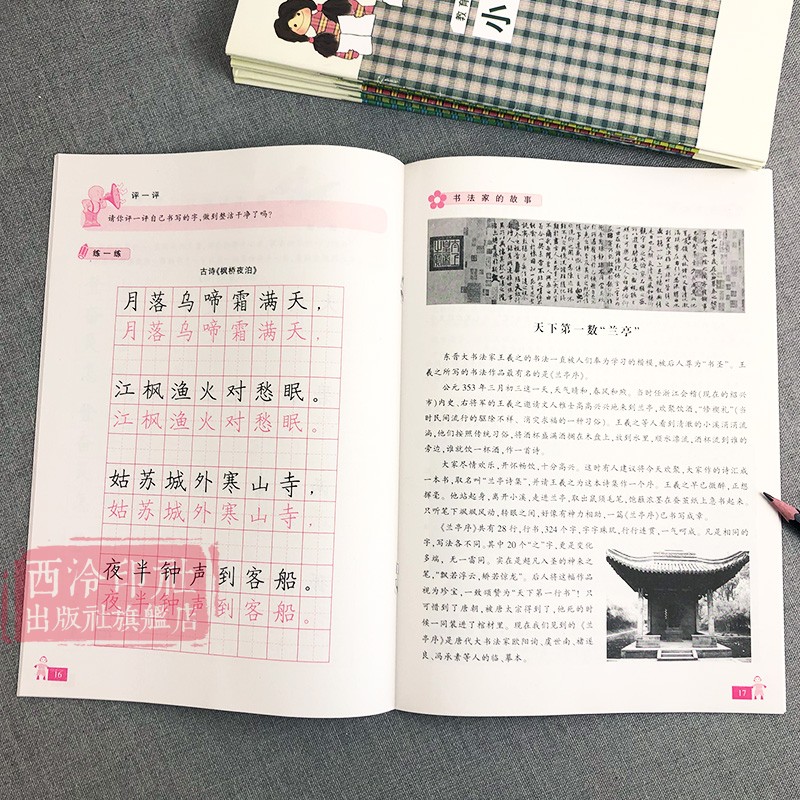 教育
小
评一评
请你评一评自己书写的字,做到整洁干净了吗?
练一练
古诗《枫桥夜泊》
月落乌啼霜满天,
月落乌啼霜满天,
江枫渔火对愁眠。
江枫渔火对愁眠。
姑苏城外寒山寺,
姑苏城外寒山寺,
夜半钟声到客船。
夜半钟声到客船。
16
西泠印社
出版社旗艦店
书法家的故事
天下第一数“兰亭”
东晋大书法家王羲之的书法一直被人们奉为学习的楷模,被后人尊为“书圣”。王
羲之所写的书法作品最有名的是《兰亭序》。
公元353年三月初三这一天,天气晴和,春风和煦。当时任浙江会稽(现在的绍兴
市)内史、右将军的王羲之邀请文人雅士高高兴兴地来到兰亭,欢聚饮酒,“修禊礼”(当
时民间流行的驱除不祥、消灾永福的一种习俗)。王羲之等人看到清澈的小溪涓涓流
淌,他们按照传统习俗,将酒杯盛满酒搁在木盘上,放到水里,顺水漂流,酒杯流到谁的
旁边,谁就饮一杯酒,作一首诗。
大家尽情欢乐,开怀畅饮,十分高兴。这时有人建议将今天欢聚,大家作的诗汇成
一本书,取名叫“兰亭诗集”,并请王羲之为这本诗集作一个序。王羲之早已微醉,正想
挥毫。他站起身,离开小溪,走进兰亭,取出鼠须毛笔,饱蘸浓墨在蚕茧纸上急书起来。
只听笔下飒飒风动,转眼之间,好像有神力相助,一篇《兰亭序》已书写成章。
《兰亭序》共有28行,行书,324个字,字字珠玑,行行连贯,一气呵成。凡是相同的
字,写法各不同。其中20个“之”字,更是变化
多端,无一雷同。实在是超凡入圣的神来之
笔,“飘若浮云,矫若惊龙”。后人将这幅作品
视为珍宝,一致颂赞为“天下第一行书”!只
可惜到了唐朝,被唐太宗得到了,他死的时
候一同装进了棺材里。现在我们见到的《兰
亭序》是唐代大书法家欧阳询、虞世南、褚遂
良、冯承素等人的临、摹本。
17